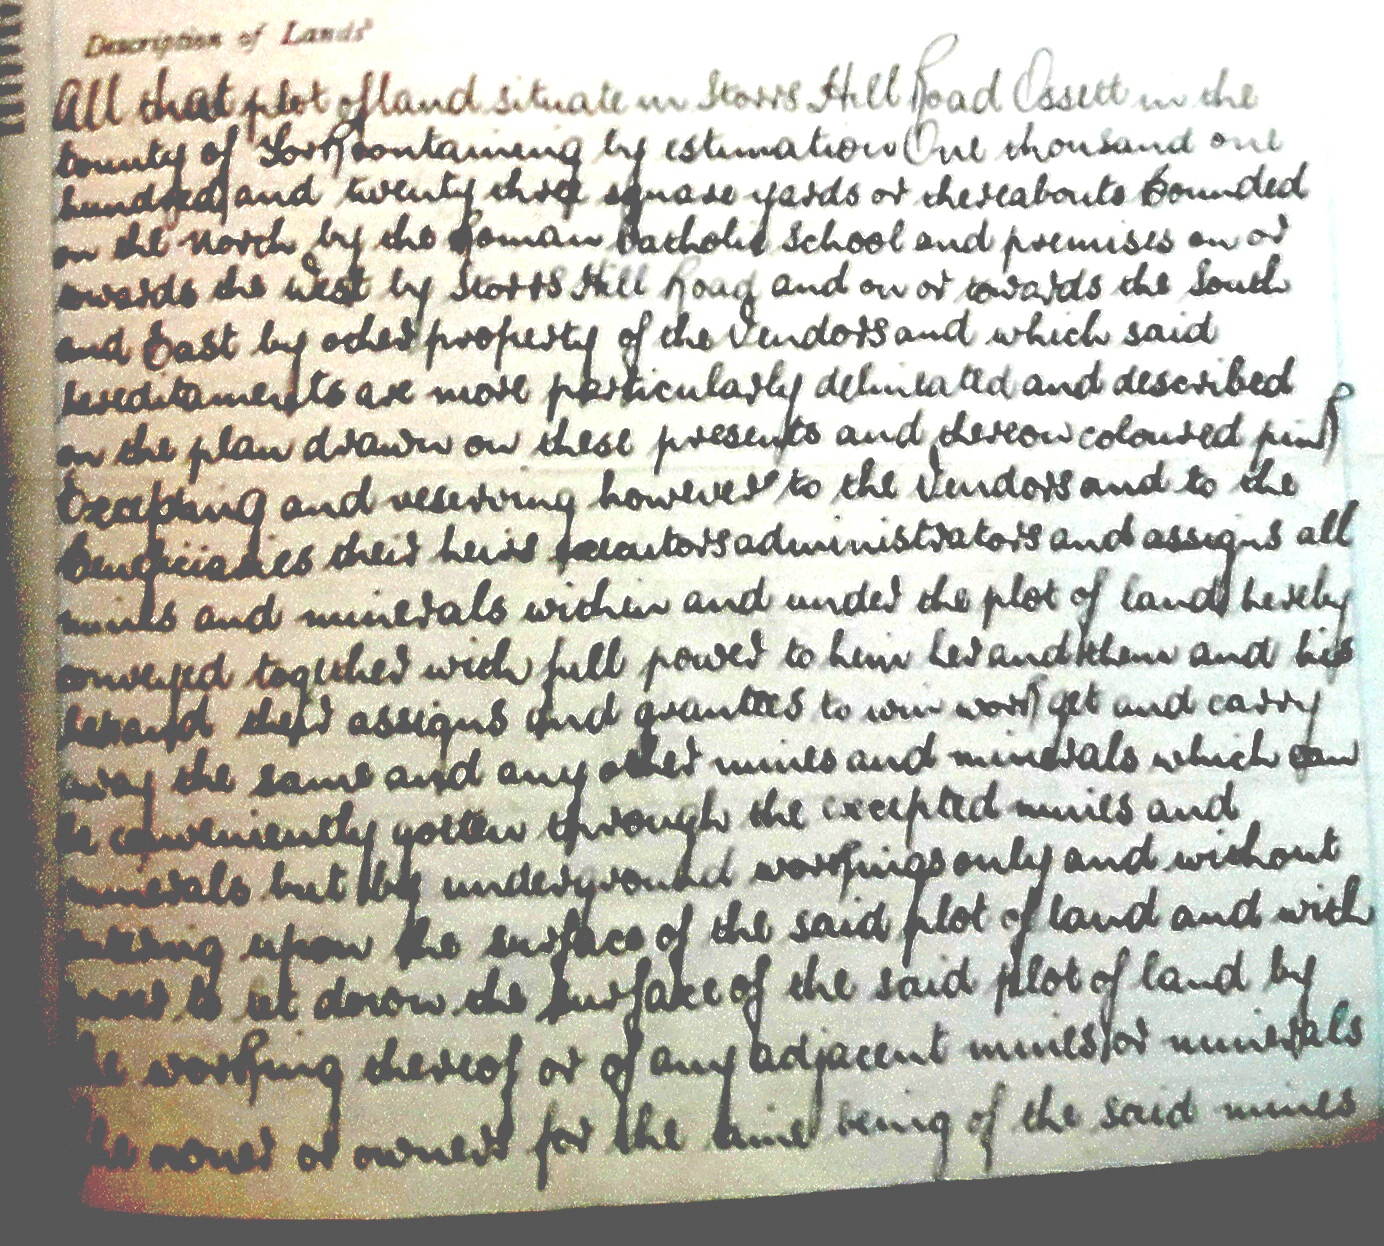 Description of Lands
All that plot of land situate in Storrs Hill Road Ossett in the
County of York containing by estimation One thousand one
hundred and twenty three square yards or thereabouts Bounded
on the North by the Roman Catholic School and premises on or
towards the West by Storrs Hill Road and on or towards the South
and East by other property of the Vendors and which said
hereditaments are more particularly delineated and described
on the plan drawn on these presents and thereon coloured pink
Excepting and reserving however to the Vendors and to the
Beneficiaries their heirs executors administrators and assigns all
mines and minerals within and under the plot of land hereby
conveyed together with full power to him her and them and his
her and their assigns and grantees to win work get and carry
away the same and any other mines and minerals which can
be conveniently gotten through the excepted mines and
minerals but by underground workings only and without
entering upon the surface of the said plot of land and with
power to let down the surface of the said plot of land by
the working thereof or of any adjacent mines or minerals
the owner or owners for the time being of the said mines